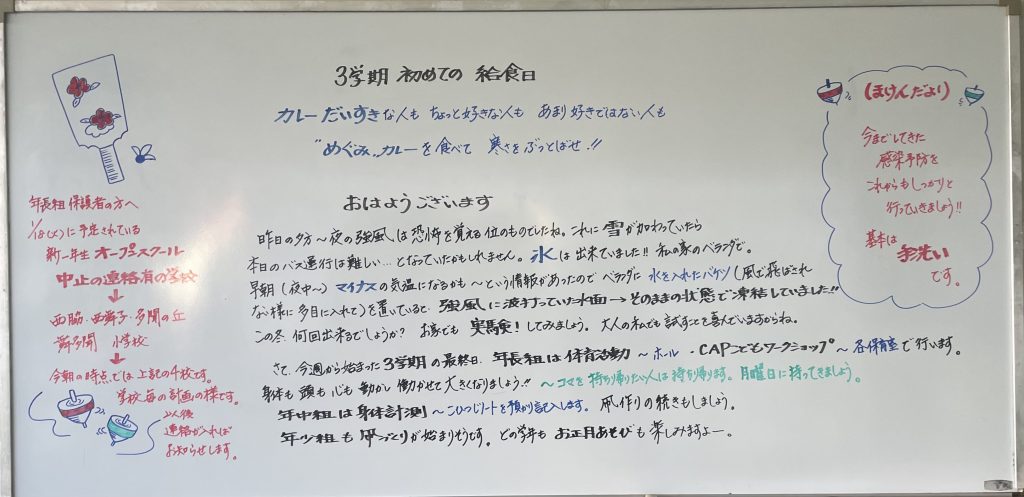 3学期 初めての 給食日
カレーだいすきな人も ちょっと好きな人も あまり好きではない人も
"めぐみ"カレーを食べて 寒さをぶっとばせ!!
年長組 保護者の方へ
に予定されている
新一年生 オープンスクール
中止の連絡有の学校
↓
西脇・西舞子・多聞の丘
舞多聞 小学校
↓
今朝の時点では上記の4校です。
学校毎の計画の様です。
以後
連絡が入れば
お知らせします。
おはようございます
昨日の夕方～夜の強風は恐怖を覚える位のものでしたね。これに雪が加わっていたら
本日のバス運行は難しい…となっていたかもしれません。氷は出来ていました!! 私の家のベランダで。
早朝(夜中～)マイナスの気温になるかも～という情報があったのでベランダに水を入れたバケツ(風で飛ばされ
ない様に多目に入れて)を置いていると、強風に波打っていた水面→そのままの状態で凍結していました!!
この冬、何回出来るでしょうか? お家でも 実験!してみましょう。大人の私でも試すことを喜んでいますからね。
さて、今週から始まった3学期の最終日、年長組は体育活動～ホール・CAPこどもワークショップ～各保育室で行います。
身体も頭も心も動かし働かせて大きくなりましょう!! ～コマを持ち帰りたい人は持ち帰ります。月曜日に持ってきましょう。
年中組は身体計測～こひつじノートを預かり記入します。凧作りの続きもしましょう。
年少組も凧づくりが始まりそうです。どの学年もお正月あそびも楽しみますよー。
(ほけんだより)
今までしてきた
感染予防を
これからもしっかりと
行っていきましょう!!
基本は
手洗い
です。